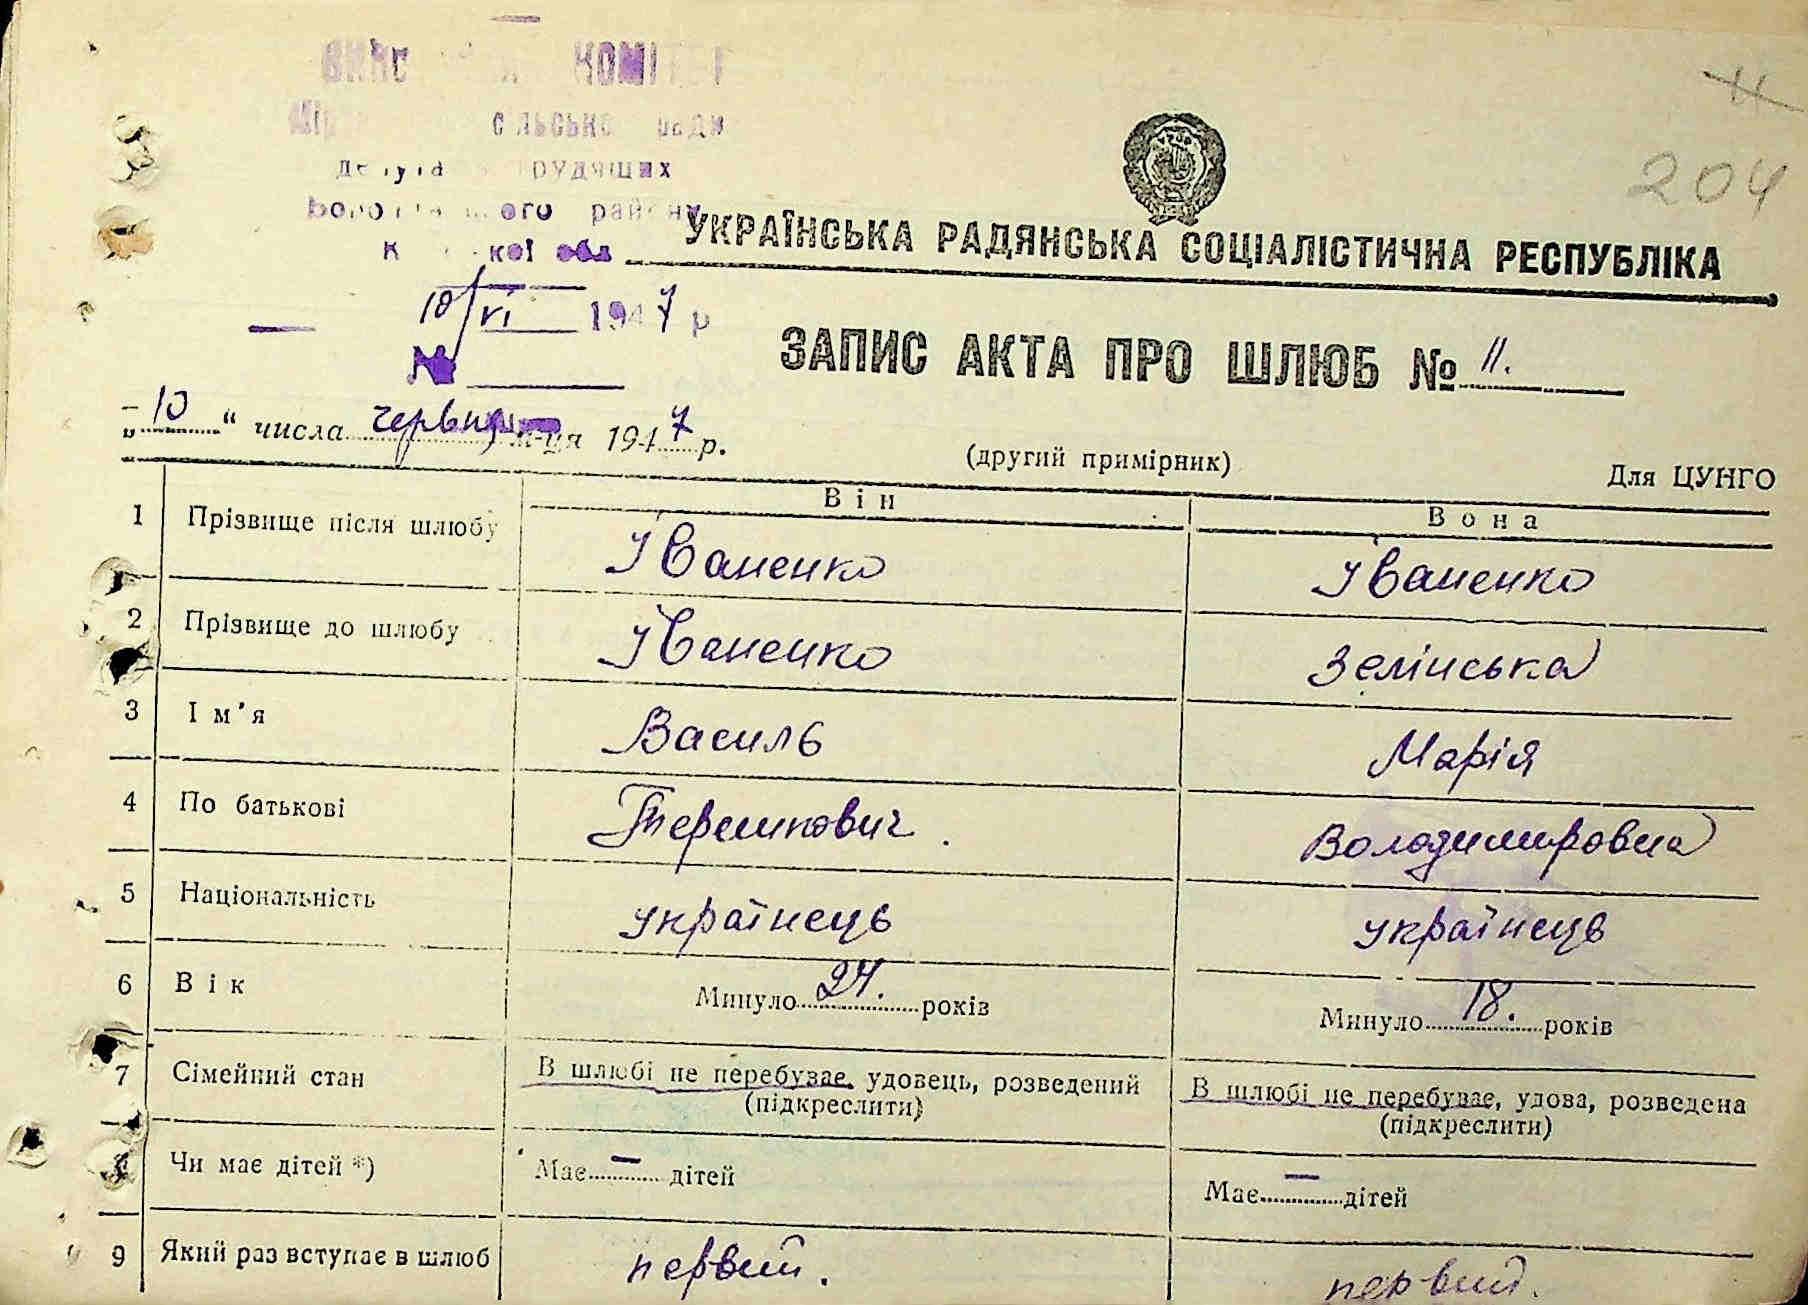 КОМІТЕТ
сільської ради
трудящих
району
обл
204
УКРАЇНСЬКА РАДЯНСЬКА СОЦІАЛІСТИЧНА РЕСПУБЛІКА
10/VI 1947 р
№
ЗАПИС АКТА ПРО ШЛЮБ № 11.
„10“ числа червня м-ця 1947 р.
(другий примірник)
Для ЦУНГО
Він Вона
1 Прізвище після шлюбу Іваненко Іваненко
2 Прізвище до шлюбу Іваненко Зелінська
3 Ім'я Василь Марія
4 По батькові Терешкович Володимировна
5 Національність українець українець
6 Вік Минуло 24. років Минуло 18. років
7 Сімейний стан В шлюбі не перебуває, удовець, розведений В шлюбі не перебуває, удова, розведена
(підкреслити) (підкреслити)
8 Чи має дітей *) Має – дітей Має – дітей
9 Який раз вступає в шлюб первий. первий.